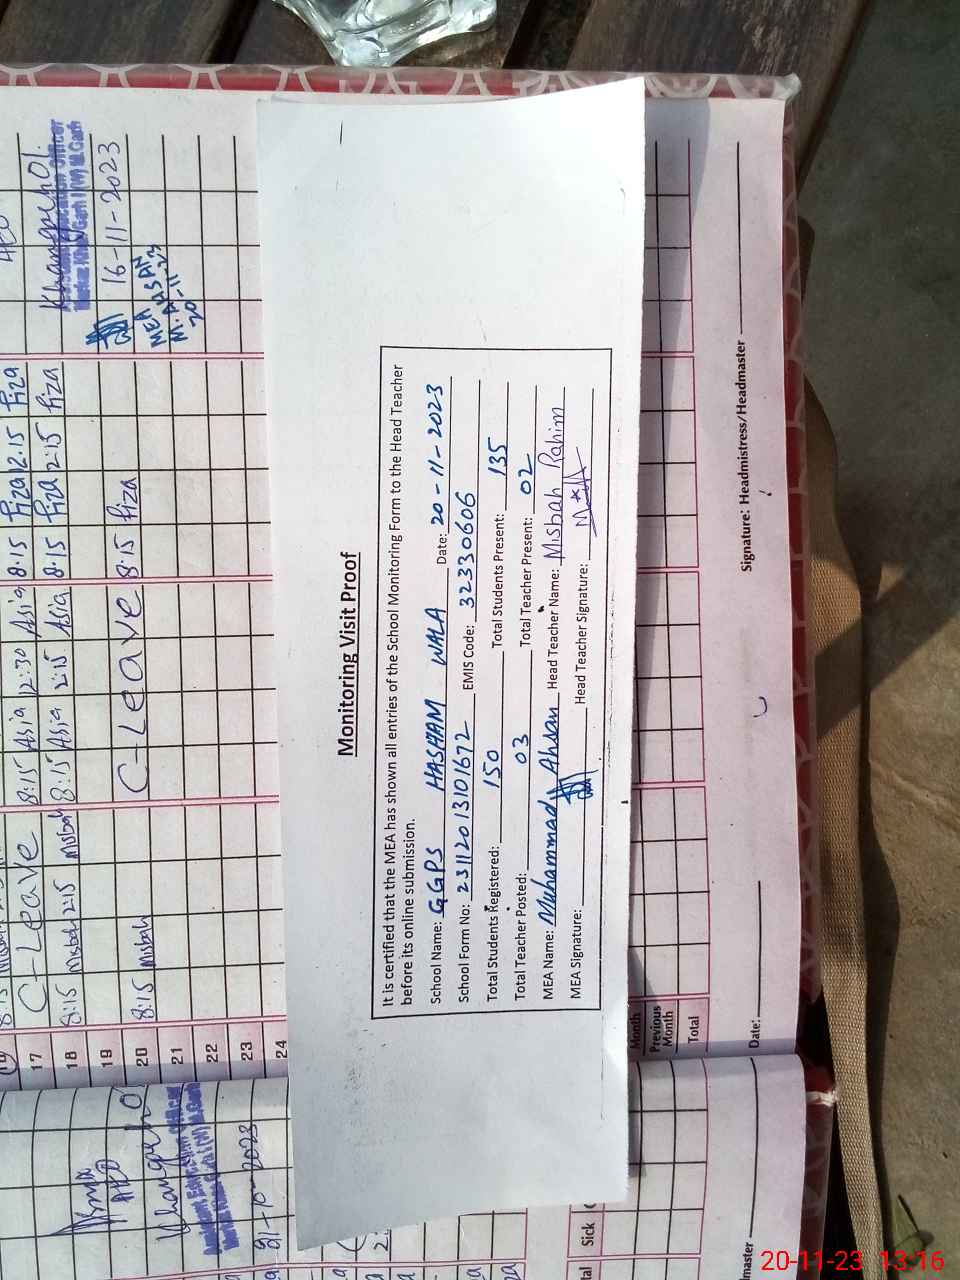 Monitoring Visit Proof
It is certified that the MEA has shown all entries of the School Monitoring Form to the Head Teacher
before its online submission.
School Name: GGPS HASHAM WALA Date: 20-11-2023
School Form No: 23112013101672 EMIS Code: 32330606
Total Students Registered: 150 Total Students Present: 135
Total Teacher Posted: 03 Total Teacher Present: 02
MEA Name: Muhammad Ahsan Head Teacher Name: Misbah Rahim
MEA Signature: Head Teacher Signature:
17 C-Leave 8:15 Asia 12:30 Asia 8:15 fiza 12.15 fiza
18 8:15 Misbah 2:15 Misbah 8:15 Asia 2:15 Asia 8.15 fiza 2:15 fiza
19
20 8:15 Misbah C-Leave 8:15 fiza
21
22
23
24
Khangarh 01.
16-11-2023
MEA
M. AHSAN
20-11-23
AEO
Month
Previous
Month
Total
Date:
Signature: Headmistress/Headmaster
Sick
20-11-23 13:16